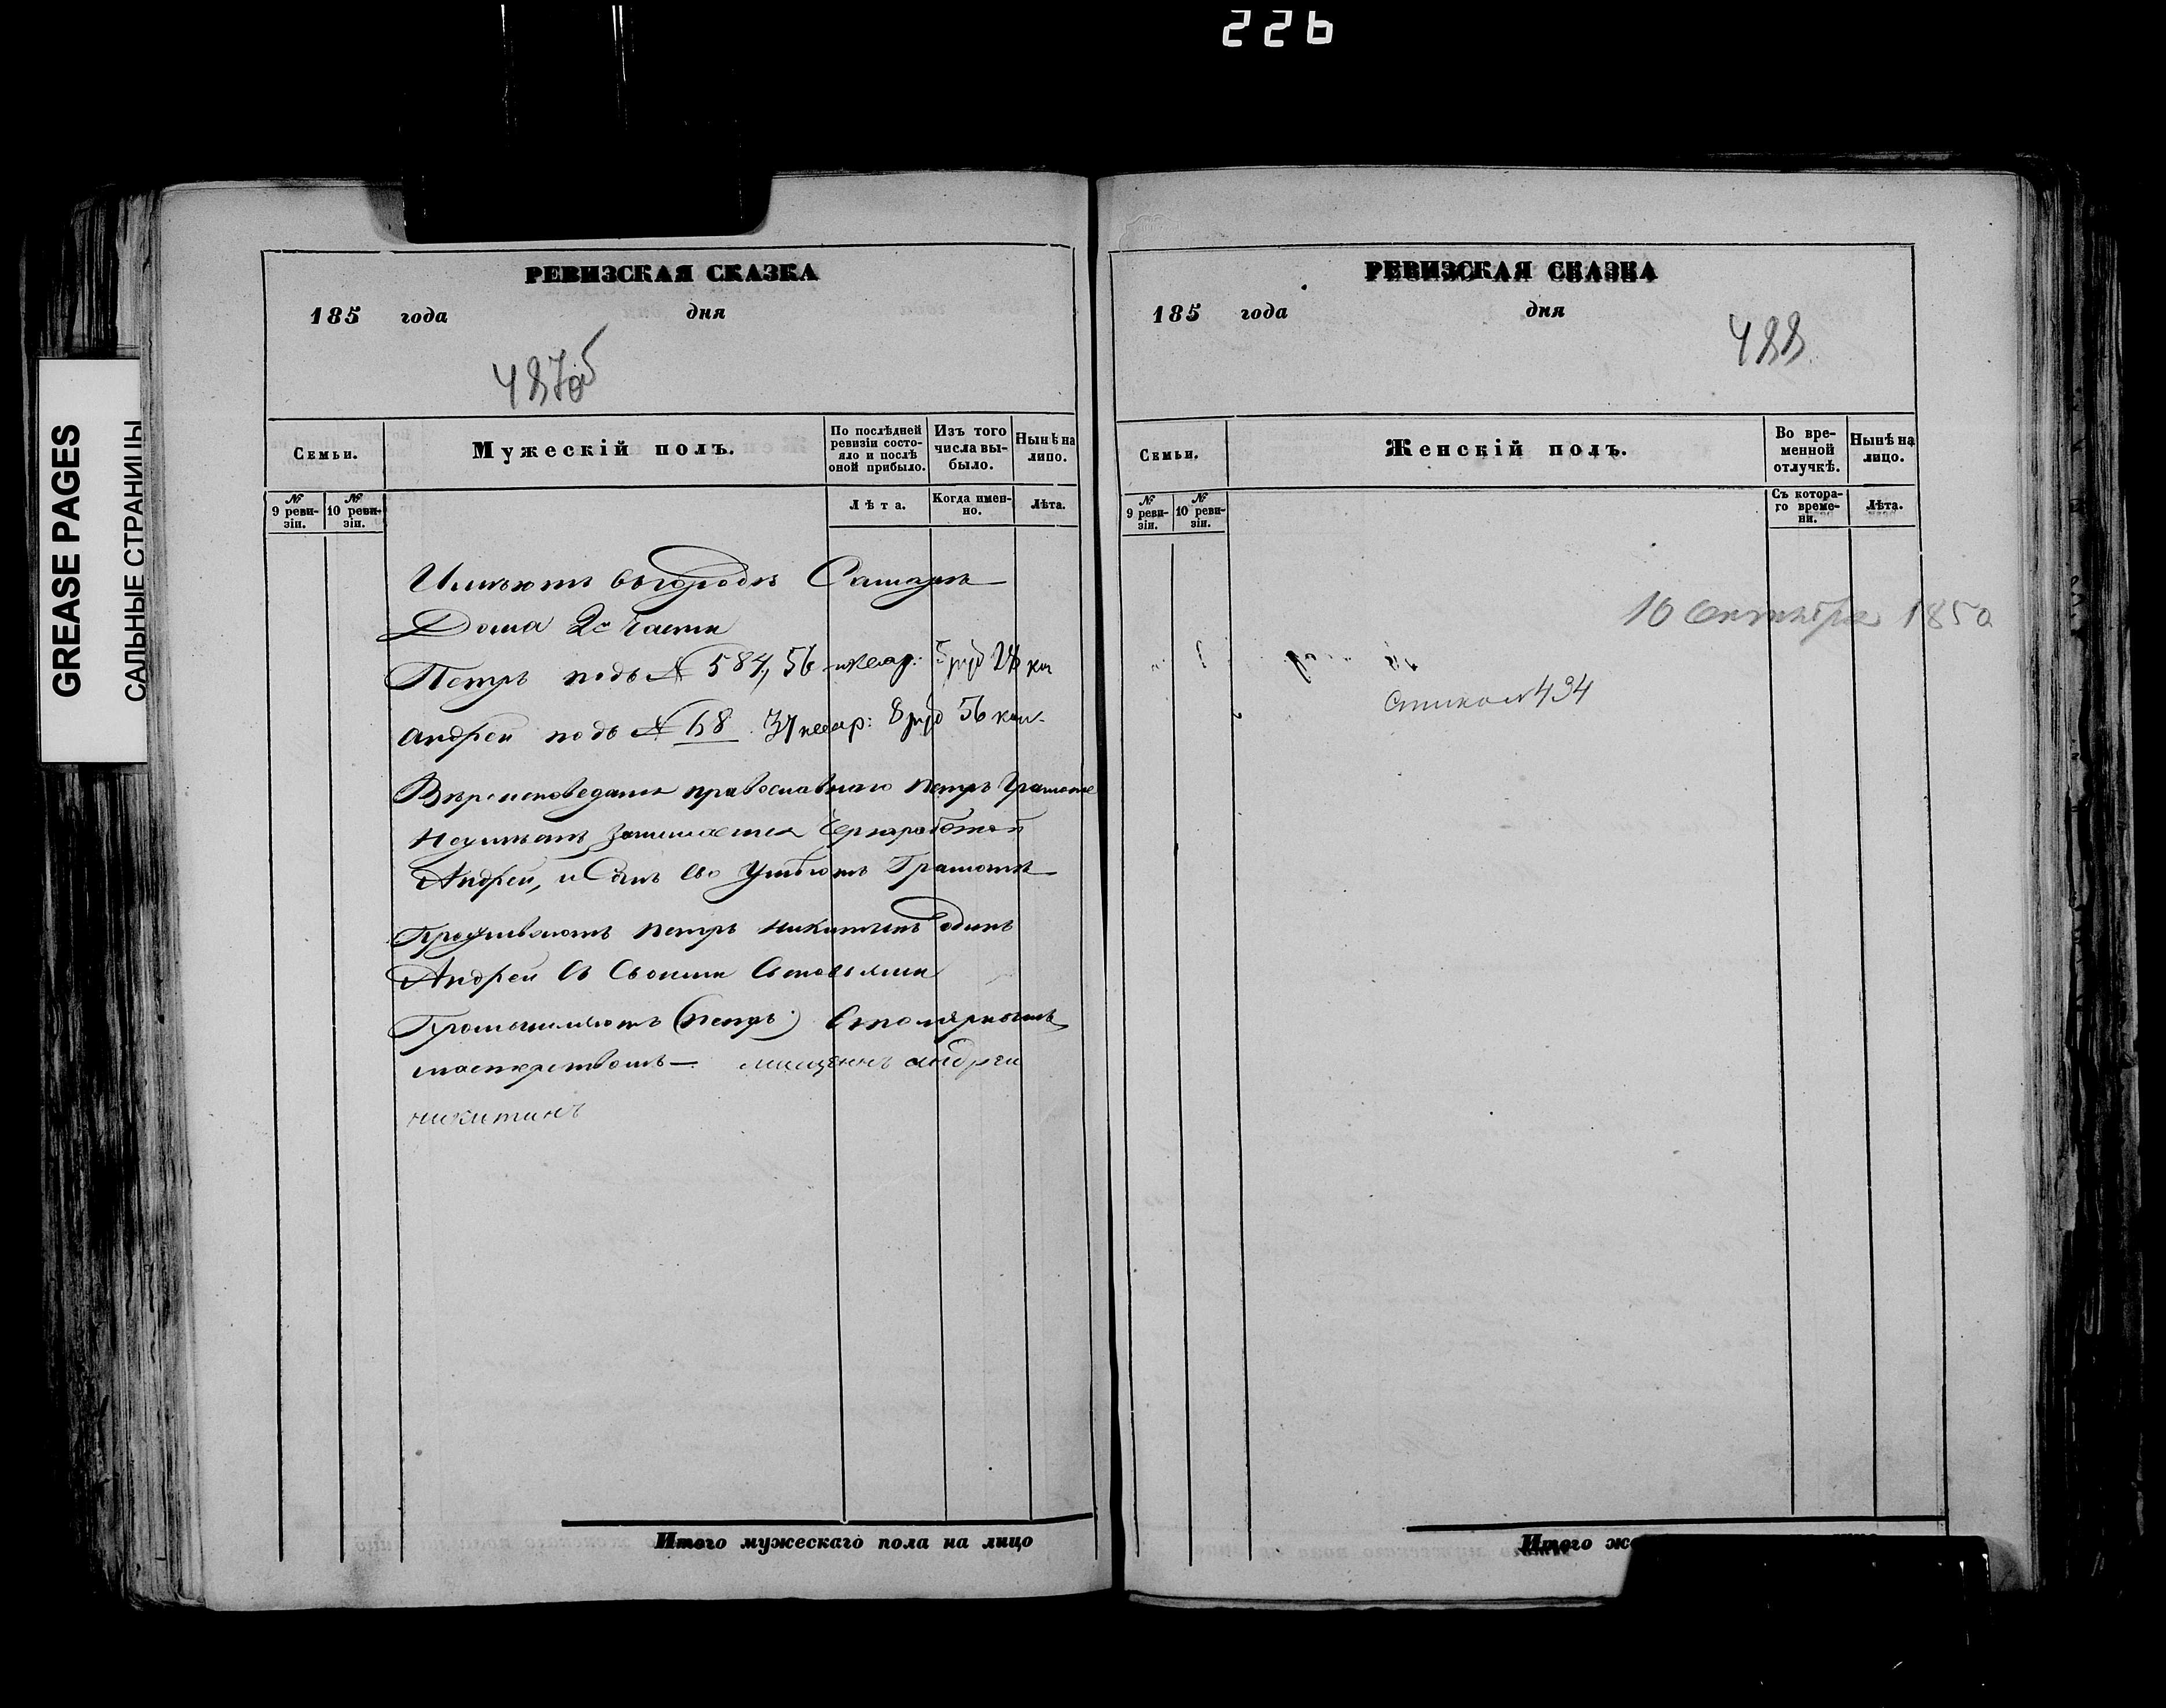 226
GREASE PAGES
САЛЬНЫЕ СТРАНИЦЫ
РЕВИЗСКАЯ СКАЗКА
185 года дня
487об
Семьи.
Мужескій полъ.
По послѣдней ревизіи состояло и послѣ оной прибыло.
Изъ того числа выбыло.
Нынѣ на лицо.
№ 9 ревизіи.
№ 10 ревизіи.
Лѣта.
Когда именно.
Лѣта.
Имѣютъ въ городѣ Самарѣ
Дома 2й части
Петръ подъ № 584, 56 квар: 5 руб 24 ко
Андрей подъ № 68 37 квар: 8 руб 56 коп.
Вѣроисповеданія православнаго Петръ Грамоте
Неумѣетъ Занимается Чернаработай
Андрей, и Сынъ Его Умѣютъ Грамотѣ
Проживаютъ Петръ Никитинъ одинъ
Андрей Съ Своими Сыновьями
Промышляютъ (Петръ) Столярнымъ
мастерствомъ — мищенинъ андреи
никитинъ
Итого мужескаго пола на лицо
РЕВИЗСКАЯ СКАЗКА
185 года дня
488
Семьи.
Женскій полъ.
Во временной отлучкѣ.
Нынѣ на лицо.
№ 9 ревизіи.
№ 10 ревизіи.
Съ котораго времени.
Лѣта.
10 Октября 1850
434
Итого